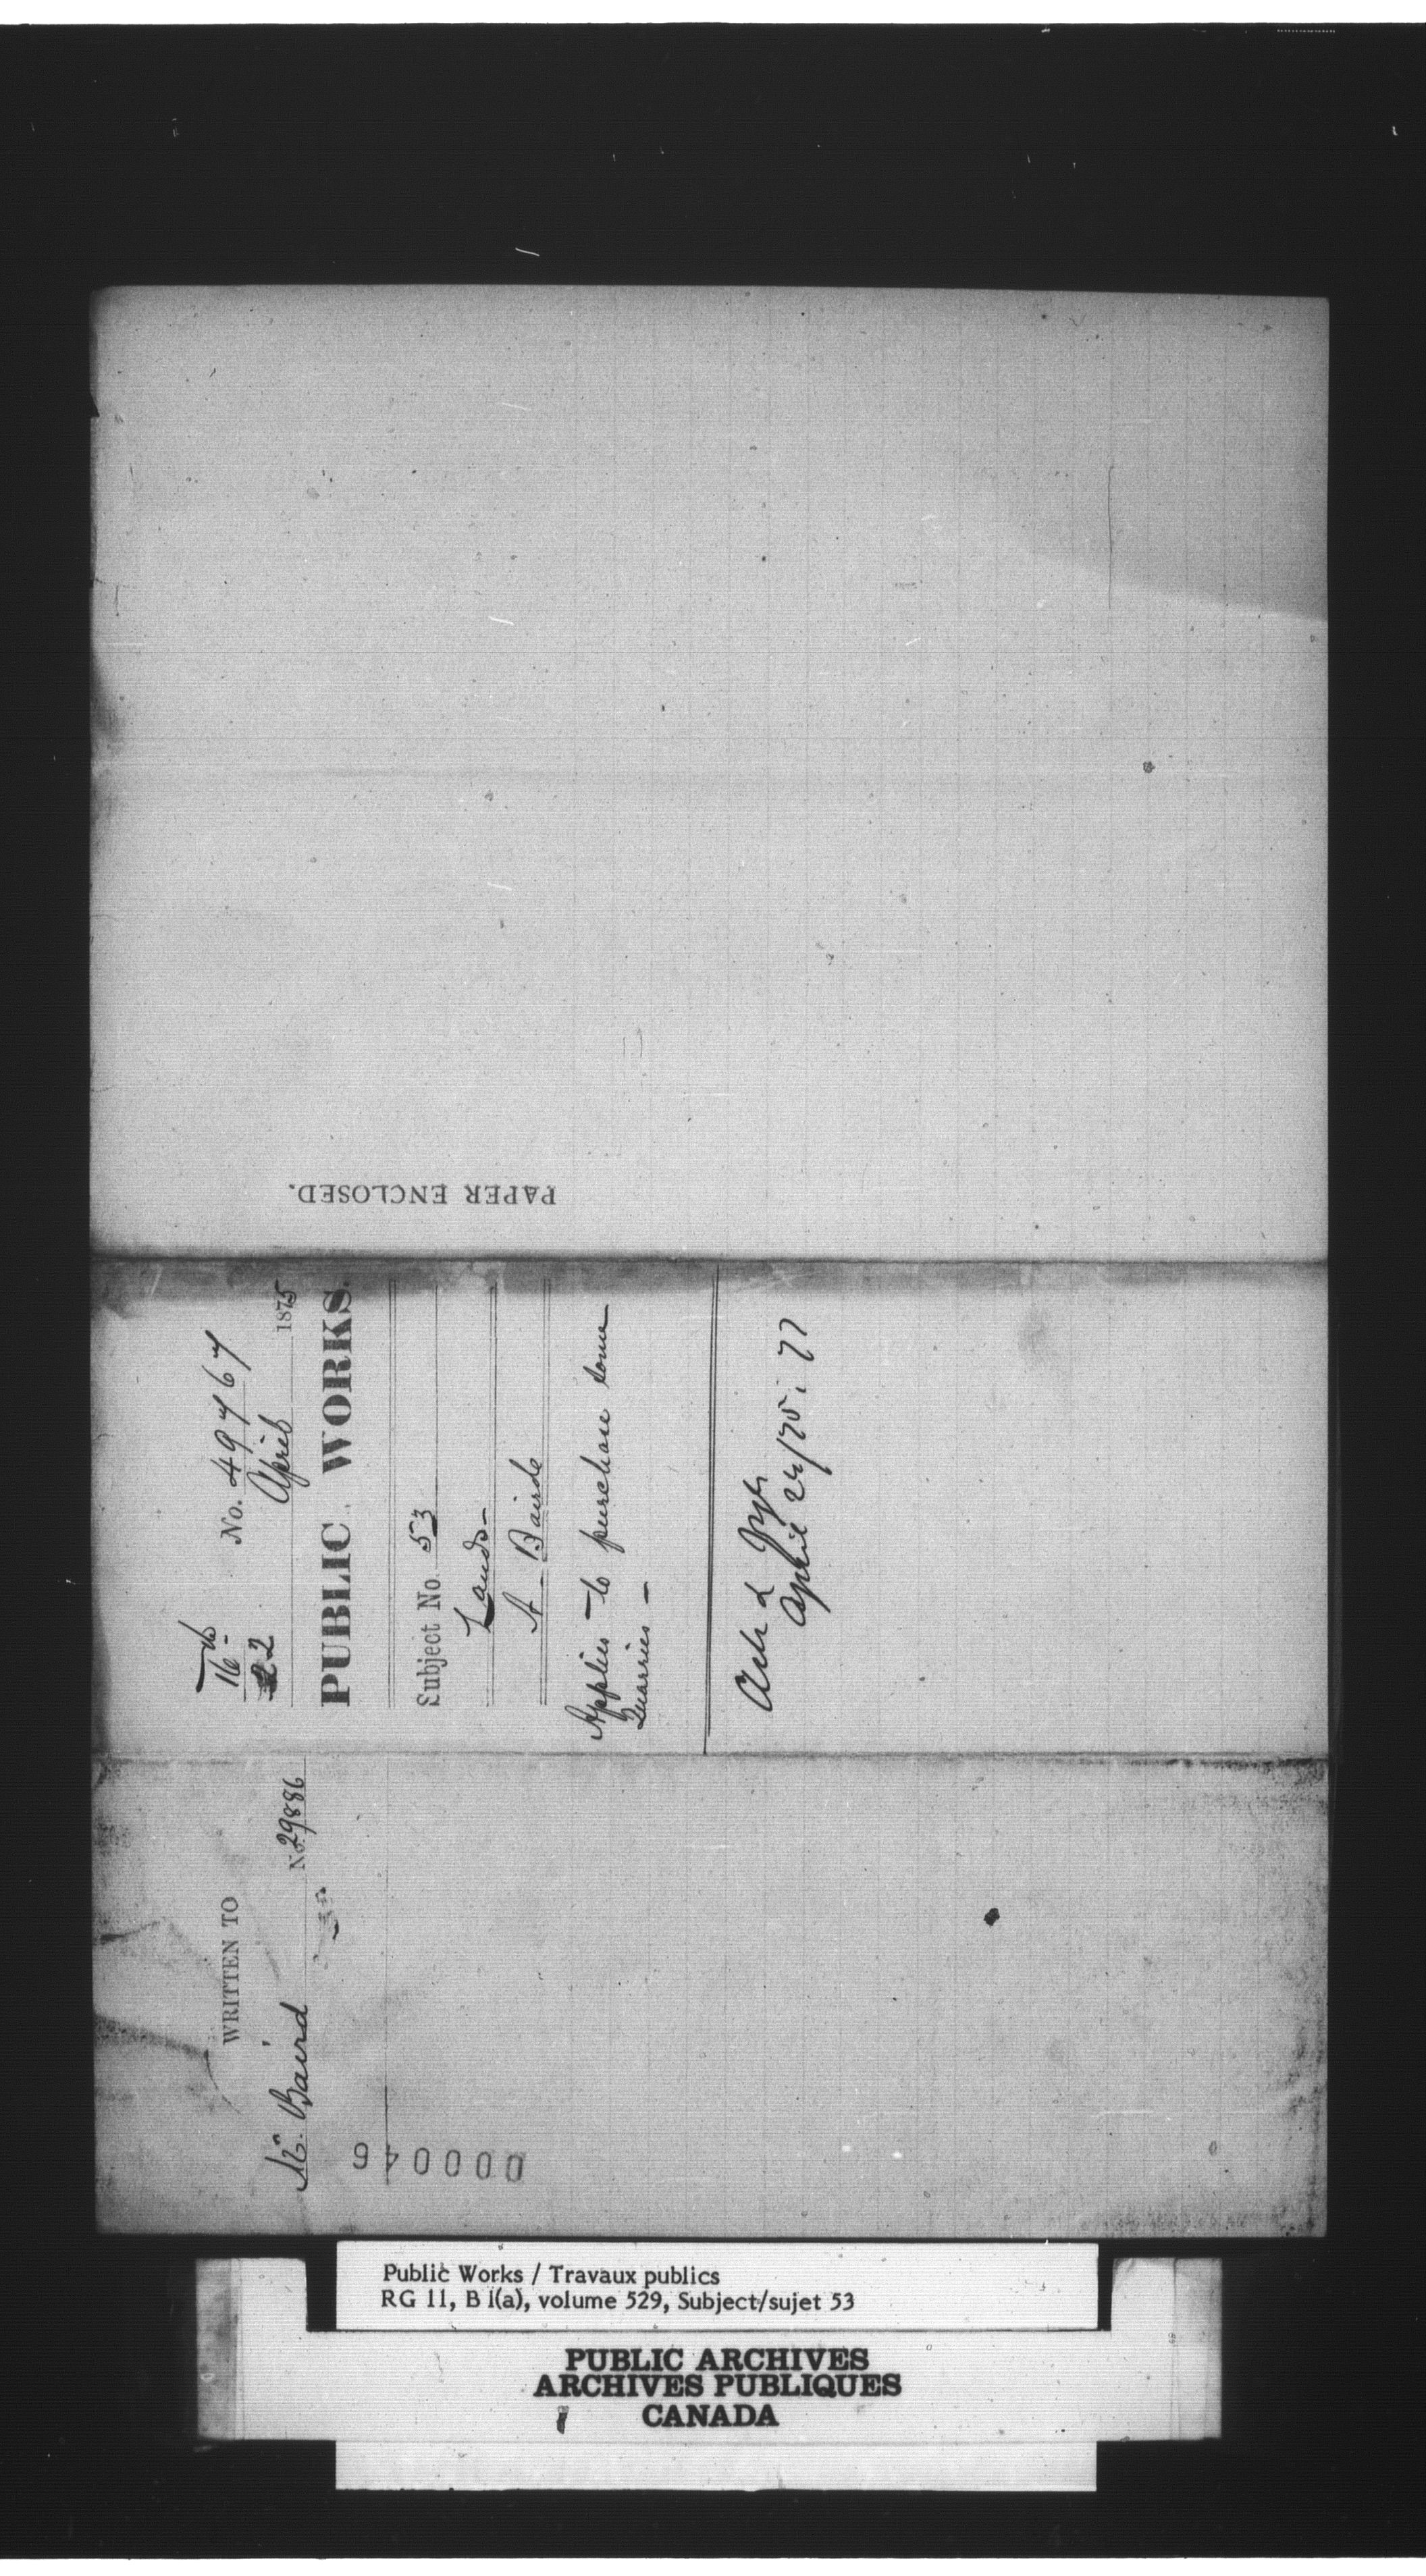 PAPER ENCLOSED.
16th
22
No. 49767
April 1875
PUBLIC WORKS.
Subject No. 53
Lands-
A Bairde
Applies to purchase some
Quarries -
April 22/75
WRITTEN TO
Baird No 29886
000046
Public Works / Travaux publics
RG 11, B 1(a), volume 529, Subject/sujet 53
PUBLIC ARCHIVES
ARCHIVES PUBLIQUES
CANADA